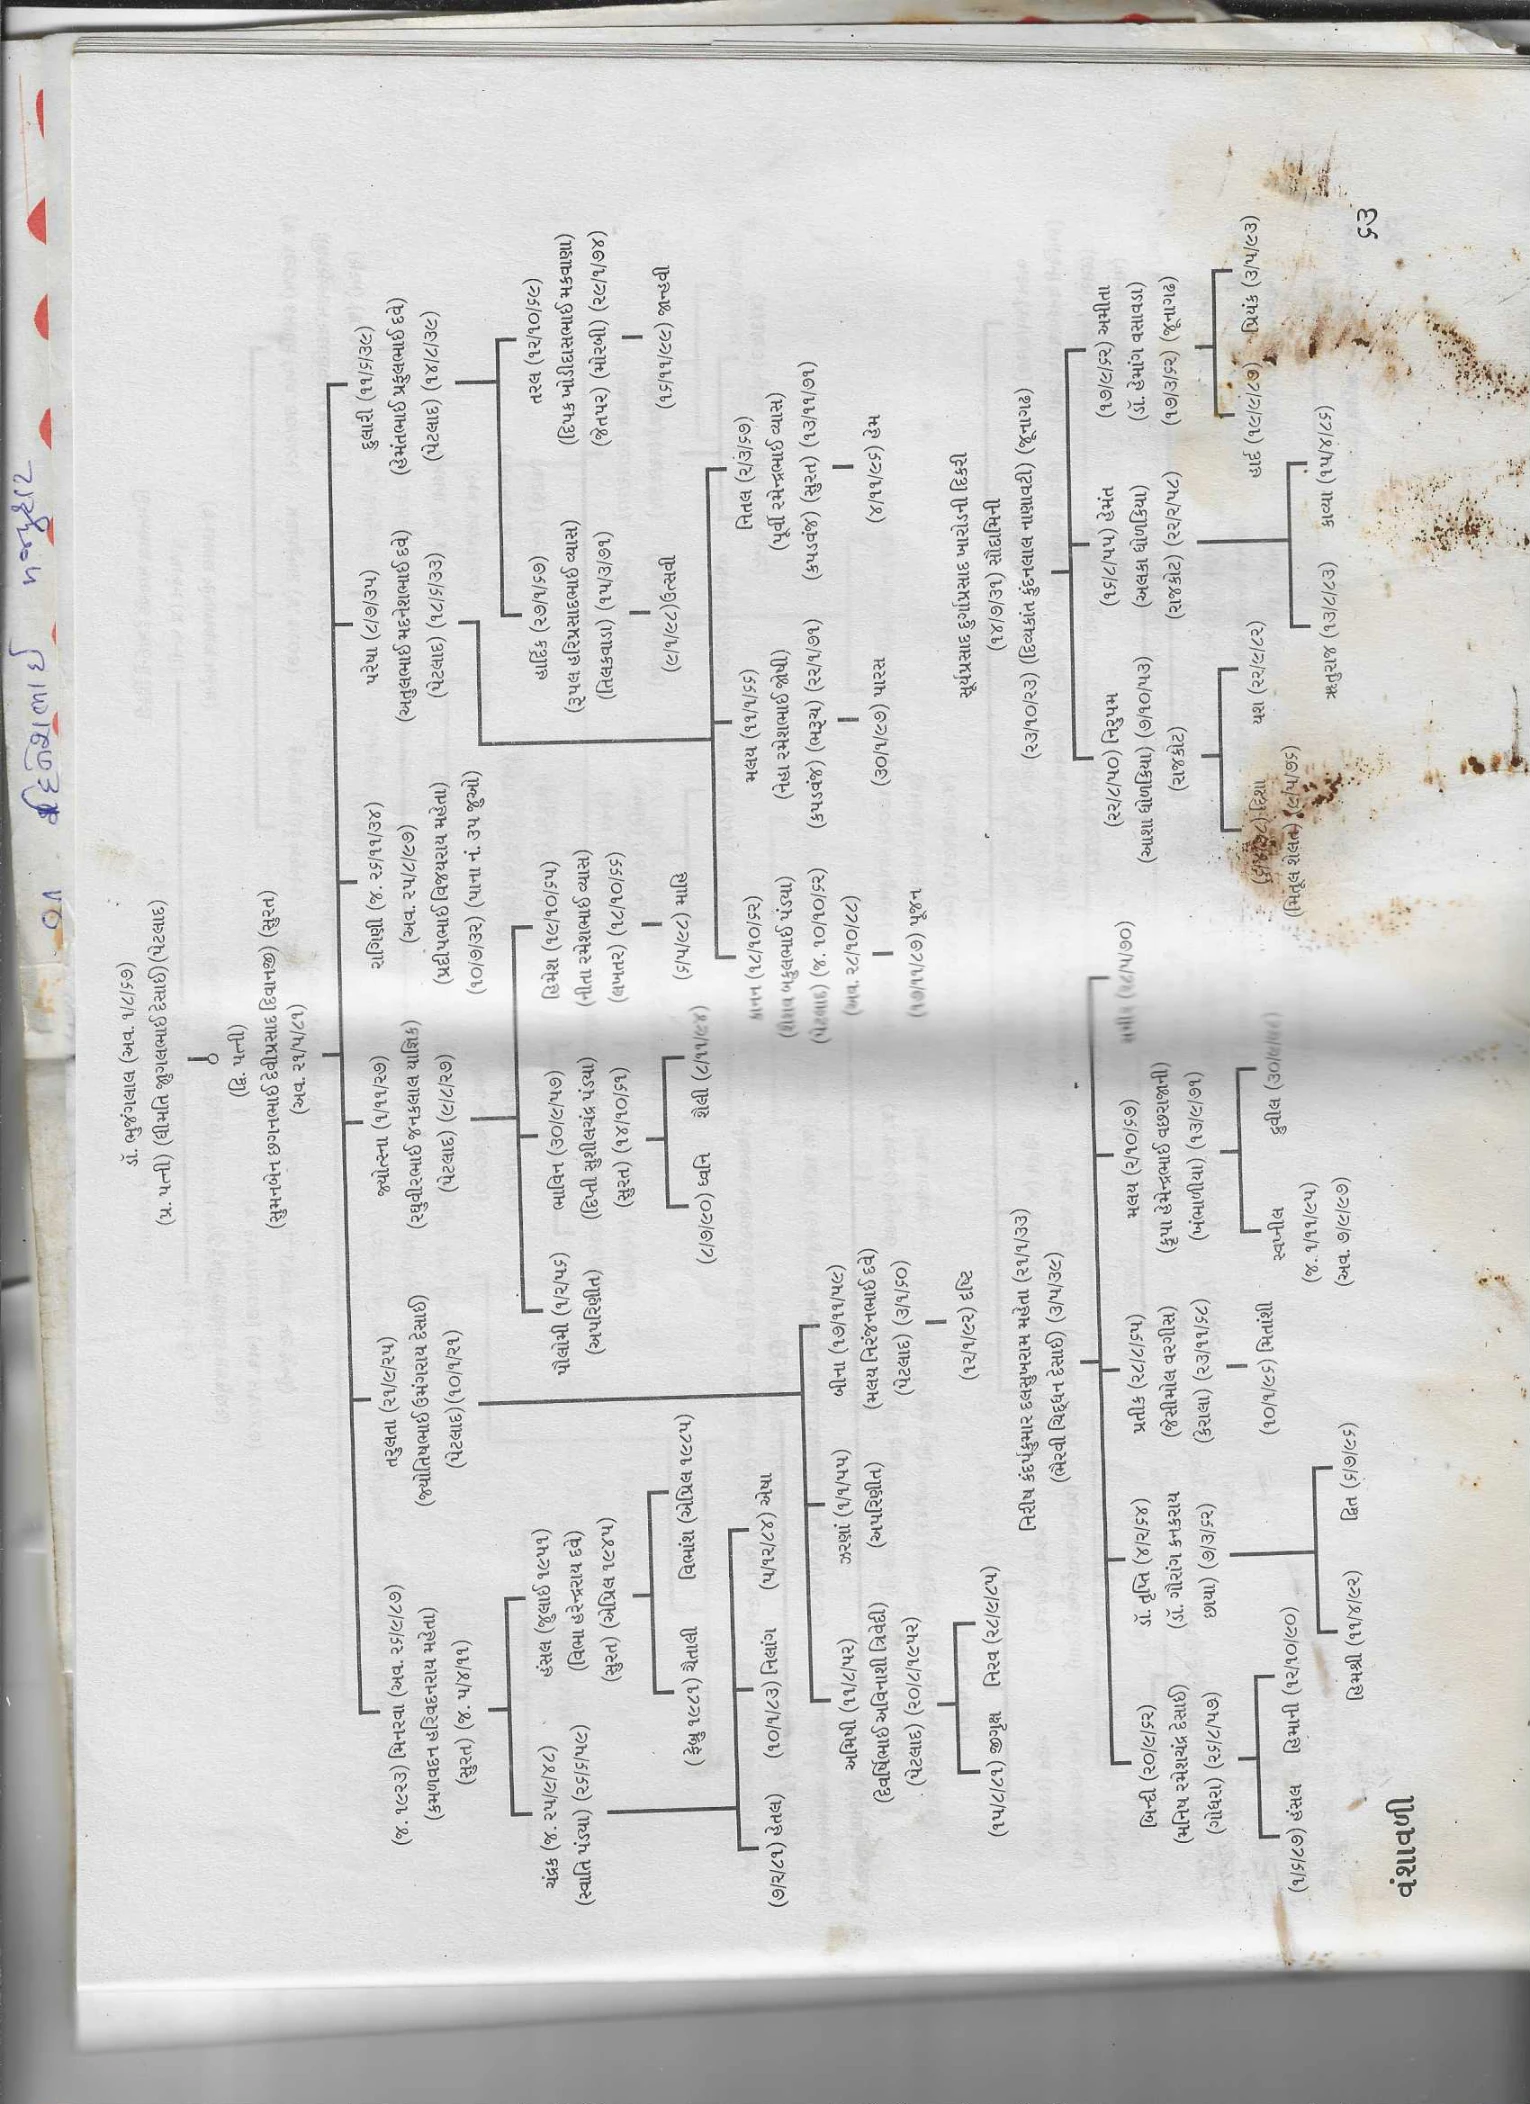 વ૧ દિનેશભાઈ મજમુદાર
ડૉ. ભુજંગલાલ (અવ. ૧/૮/૬૭)
(પ્ર. પત્ની) (ધીમતિ જુગલભાઈ દેસાઈ) (પેટલાદ)
(દ્વિ. પત્ની)
(સુમનબેન છગનભાઈ દેવીપ્રસાદ દિવાનજી) (સુરત)
(અવ. ૨૧/૫/૮૧)
(જ. ૧૯૨૩) મિનરવા (અવ. ૨૬/૯/૮૭)
(કમળવદન હરિવદનરાય મહેતા)
(સુરત) (જ. ૫/૪/૧૧)
તરુલતા (૨૧/૯/૨૫)
(જ્યોતિષભાઈ ઉમંગરાય દેસાઈ)
(પેટલાદ) (૧૦/૧/૨૧)
જ્યોત્સ્ના (૧/૧૧/૨૭)
(રઘુવીરભાઈ જનકલાલ યાજ્ઞિક)
(પેટલાદ) (૯/૮/૨૭)
રાગિણી (જ. ૨૬/૧૧/૩૪)
(અવ. ૨૫/૮/૯૭)
(પ્રદીપભાઈ વિજયરાય મહેતા)
(૧૦/૭/૩૨) (પાના નં. ૩૫ જુઓ)
પરેષા (૮/૭/૩૫)
(અતુલભાઈ મદનેશભાઈ દવે)
(પેટલાદ) (૧૮/૬/૩૩)
દુલારી (૧૧/૬/૩૯)
(હેમંતભાઈ પ્રફુલભાઈ દવે)
(પેટલાદ) (૧૪/૮/૩૯)
ચંદ્રક (જ. ૨૫/૯/૪૮)
(સ્વાતિ પંડયા) (૨૬/૬/૫૯)
હંસલ (જુલાઈ ૧૯૫૧)
(વિભા હરેન્દ્રરાય દવે)
(સુરત) (એપ્રિલ ૧૯૪૫)
પૌલોમી (૧/૨/૫૬)
(અપરિણીત)
ભાવિન (૩૦/૯/૫૭)
(દિપ્તી સુશીલચંદ્ર પંડયા)
(સુરત) (૧૪/૧૦/૬૧)
હિમેશ (૧૯/૧૦/૬૫)
(નીતા રમેશભાઈ વ્યાસ)
(લખતર) (૧૮/૧૦/૬૬)
હાર્દિક (૨૭/૧/૬૭)
(રૂપલ હરિપ્રસાદભાઈ વ્યાસ)
(તિલકવાડા) (૧૫/૩/૭૧)
તરલ (૧૨/૧૦/૬૯)
(દિપક ખોડીદાસભાઈ મકવાણા)
(જેતપર) (મોરબી) (૨૯/૧/૭૪)
(ફેબ્રુ ૧૯૮૧) ચૈતાલી વિભાંશ (એપ્રિલ ૧૯૮૫)
(૮/૭/૯૦) ધ્વનિ શૈલી (૮/૧૧/૯૪)
(૬/૫/૯૮) માહિ
(૯/૧/૯૮) ઉત્સવી
(૧૬/૧૧/૯૯) જાન્હવી
(૭/૨/૮૧) હેતલ) (૧૦/૧/૮૩) નિલાંગ (૫/૧૨/૮૪) એષા
કાનન (૧૮/૧૦/૬૨)
(શૈશવ બકુલભાઈ પંડયા)
(પેટલાદ) (જ. ૧૦/૧૦/૬૨)
(અવ. ૨૮/૧૦/૮૮)
મલય (૧૧/૧/૬૬)
(નેહા રમેશભાઈ જોષી)
(કપડવંજ) (ભરૂચ) (૨૨/૧/૭૧)
નિતલ (૨/૩/૬૭)
(પૂર્વી રમેન્દ્રભાઈ વ્યાસ)
(કપડવંજ) (સુરત) (૧૩/૧૧/૭૧)
અમિષી (૧૧/૮/૫૨)
(દેવર્ષિભાઈ અવિનાશી ત્રિવેદી)
(પેટલાદ) (૨૦/૮/૧૯૫૨)
ઝરણાં (૧/૧/૫૫)
(અપરિણીત)
બીના (૧૭/૧૧/૫૯)
(મલય નિરંજનભાઈ દવે)
(પેટલાદ) (૩/૧/૬૦)
(૧૭/૧૧/૮૭) પૂજન
(૩૦/૧/૯૭) પારસ
(૪/૧૧/૯૬) હેમ
(૧૫/૮/૮૧) જીગૃક્ષ નિરવ (૨૮/૯/૮૫)
(૧૨/૧/૯૨) દષ્ટિ
નિરીષ કંદર્પકુમાર દલસુખરામ મહેતા (૨૧/૧/૩૩)
(ભૈરવી ચિદ્દધન દેસાઈ) (૩/૫/૩૯)
બિન્દી (૨૦/૯/૬૨)
(મનિષ રમેશચંદ્ર દેસાઈ)
(ગોધરા) (૨૬/૮/૫૭)
ડૉ. તૃપ્તિ (૪/૨/૬૪)
(ડૉ. ગૌરાંગ કનકરાય
છાયા) (૭/૩/૬૨)
પ્રતીક (૨૮/૮/૬૫)
(જેસીમોલ વરગીસ)
(કેરાલા) (૨૩/૧૧/૬૮)
મલય (૨/૧૦/૬૭)
(કૃપા હેમેન્દ્રભાઈ વછરાજાની)
(ખંભાળીયા) (૧૩/૯/૭૧)
(૨૮/૫/૭૦)
(૧/૬/૮૭) હંસલ હિમાની (૧૨/૧૦/૯૦)
હિમશ્રી (૧૧/૪/૯૨) દ્વિત (૬/૭/૯૬)
(૧૦/૧/૯૬) મિતાંશી
સ્વપ્નીલ
(જ. ૧/૧૧/૯૫)
(અવ. ૭/૯/૯૭)
ધ્રુવીલ
સૂર્યપ્રસાદ દુર્ગાપ્રસાદ ખારોડની દિકરી
(૧૪/૭/૩૧) સૌદામિની
(૨૩/૧૦/૨૩) (દિવ્યકાંત કુંદનલાલ નાણાવટી) (જૂનાગઢ)
(૨૨/૮/૫૦) નિરુપમ
(આશા ધોળકિયા) (૭/૧૦/૫૩)
(રાજકોટ)
(૧૬/૮/૫૫) હેમંત
(અલકા ધોળકિયા)
(રાજકોટ) (૨૨/૨/૫૮)
(૧૭/૯/૬૨) અમીતા
(ડૉ. હેમાંગ વસાવડા)
(૧૭/૩/૬૨) (જૂનાગઢ)
દિશા
(મિતૂલ શેલત) (૯/૫/૭૬)
યશ (૨૨/૯/૮૨)
ઋતુરાજ (૧૩/૮/૮૩) કાવ્યા (૧૫/૪/૮૬)
હાર્દ (૧૯/૯/૮૭) પ્રિયંક (૩/૫/૯૩)
વંશાવળી
૬૩